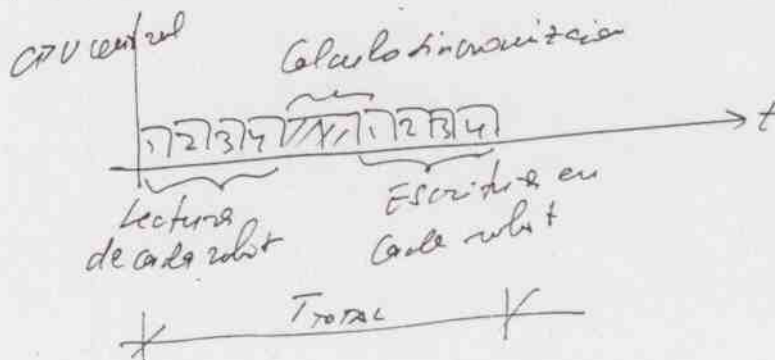 CPU central
Calculo sincronización
1 2 3 4 1 2 3 4
t
Lectura
de cada robot
Escritura en
Cada robot
T TOTAL